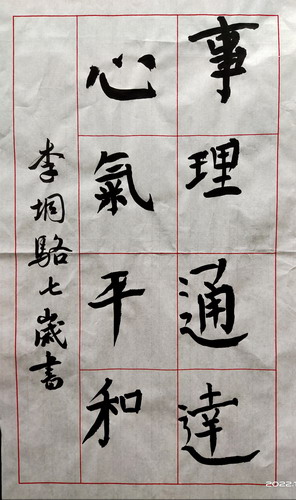 事理通達
心氣平和
李垌駱七歲書
2022.1